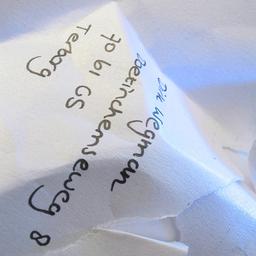 Dik Wegman
Doetinchemseweg 8
7061 GS
Terborg